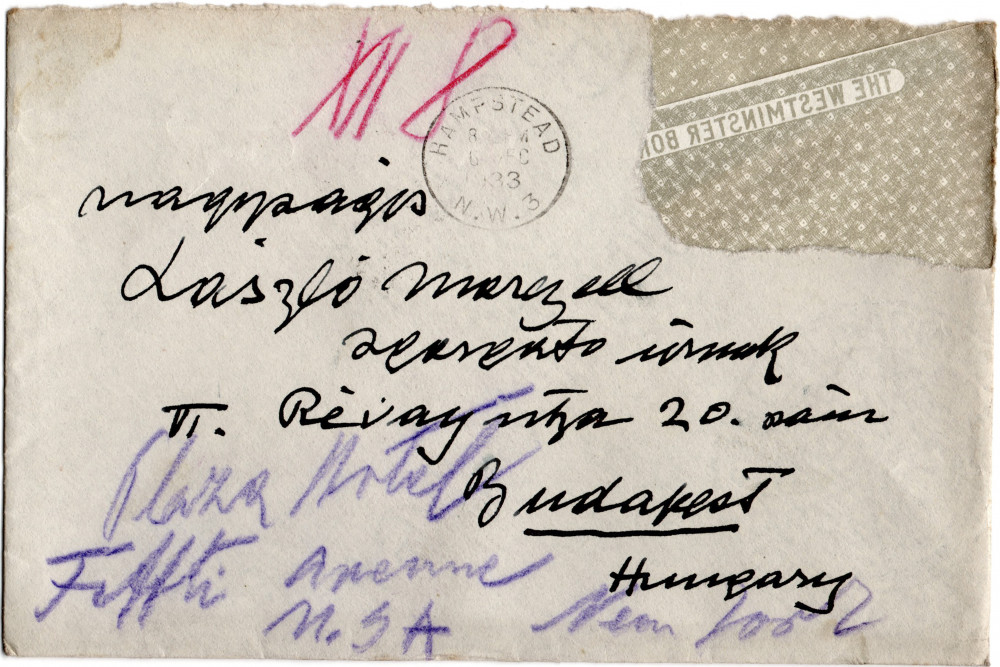 XII 8
HAMPSTEAD
DEC
1933
N.W.3
THE WESTMINSTER BON
nagyságos
László Marczell
szerkesztő úrnak
VI. Révay utca 20. szám
Budapest
Hungary
Plaza Hotel
Fiffti Avenue
New York
U.S.A